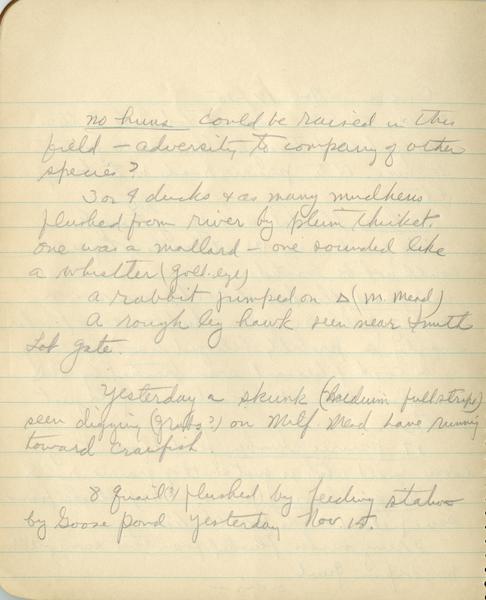 no huns could be raised in this
field – adversity to company of other
species?
3 or 4 ducks & as many mudhens
flushed from river by plum thicket.
one was a mallard – one sounded like
a whistler (gold-eye)
a rabbit jumped on Δ (M. Mead)
A rough leg hawk seen near
Lot gate.
Yesterday a skunk (Baldwin fullstripe)
seen digging (grubs?) on Milf. Mead Lane running
toward Craifish.
8 quail (?) flushed by feeding station
by Goose Pond yesterday Nov. 15.